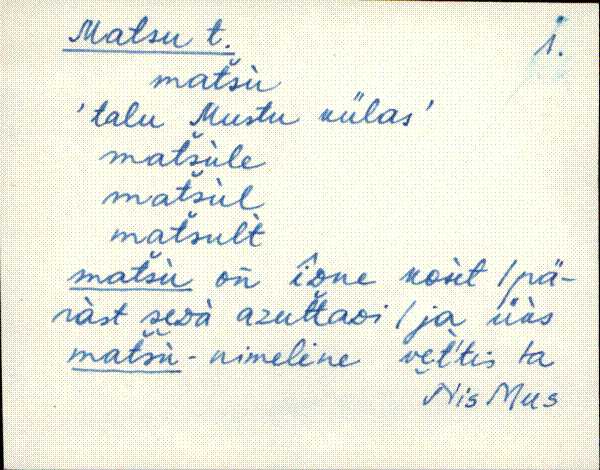 Matsu t.
i.
matšù
'talu Mustu külas'
matšùle
matšùl
matšult̀
matšù oñ îdne kosìt / pä-
ràst sedà azuttadi / ja üùs
matšù - nimeline vet̀tis ta
Nis Mus